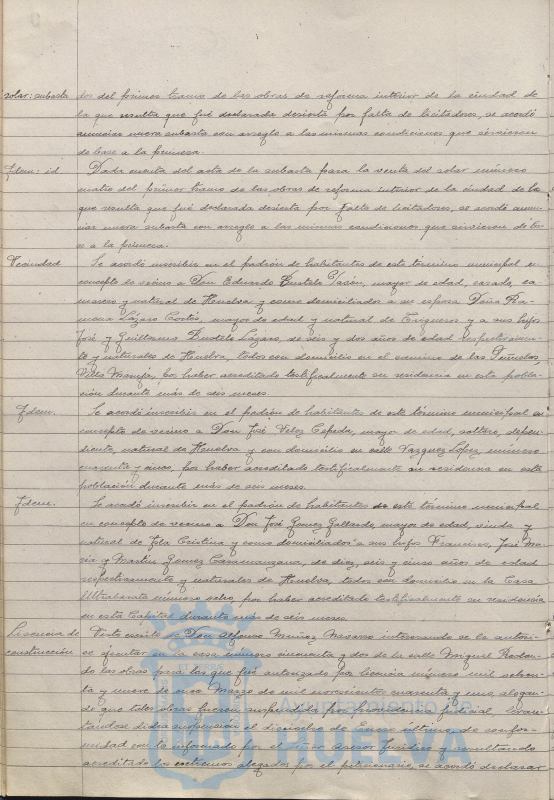 solar: subasta dos del primer tramo de las obras de reforma interior de la ciudad de
la que resulta que fué declarada desierta por falta de licitadores, se acordó
anunciar nueva subasta con arreglo a las mismas condiciones que sirvieron
de base a la primera.
Idem: id. Dada cuenta del acta de la subasta para la venta del solar número
cuatro del primer tramo de las obras de reforma interior de la ciudad de la
que resulta que fué declarada desierta por falta de licitadores, se acordó anun-
ciar nueva subasta con arreglo a las mismas condiciones que sirvieron de ba-
se a la primera.
Vecindad Se acordó inscribir en el padrón de habitantes de este término municipal en
concepto de vecino a Don Eduardo Bustelo mayor de edad, casado,
y natural de Huelva y como domiciliados a su esposa Doña Ra-
mona Lázaro Cortés, mayor de edad y natural de Trigueros y a sus hijos
José y Guillermo Bustelo Lázaro, de seis y dos años de edad respectivamen-
te y naturales de Huelva, todos con domicilio en el camino de las Peñuelas,
Villa por haber acreditado testificalmente su residencia en esta pobla-
ción durante más de seis meses.
Idem. Se acordó inscribir en el padrón de habitantes de este término municipal en
concepto de vecino a Don José Velez Cepeda, mayor de edad, soltero, depen-
diente, natural de Huelva y con domicilio en calle Vazquez Lopez, número
cuarenta y cinco, por haber acreditado testificalmente su residencia en esta
población durante más de seis meses.
Idem. Se acordó inscribir en el padrón de habitantes de este término municipal
en concepto de vecino a Don José Gomez Gallardo, mayor de edad, viudo y
natural de Isla Cristina y como domiciliados a sus hijos Francisco, José Ma-
ría y Martín Gomez de diez, seis y cinco años de edad
respectivamente y naturales de Huelva, todos con domicilio en la Casa
Ultrabarata número ocho, por haber acreditado testificalmente su residencia
en esta Capital durante más de seis meses.
Licencia de Visto escrito de Don Alfonso Muñoz Navarro interesando se le autori-
construcción ce ejecutar en la casa número cincuenta y dos de la calle Miguel Redon-
do las obras para las que fué autorizado por licencia número mil
y nueve de once Marzo de mil novecientos cuarenta y uno, alegan-
do que tales obras fueron suspendidas por providencia judicial, levan-
tandose dicha suspensión el dieciocho de Enero último, de confor-
midad con lo informado por el señor Asesor Jurídico y resultando
acreditado los extremos alegados por el peticionario, se acordó declarar
Ayuntamiento de
HUELVA